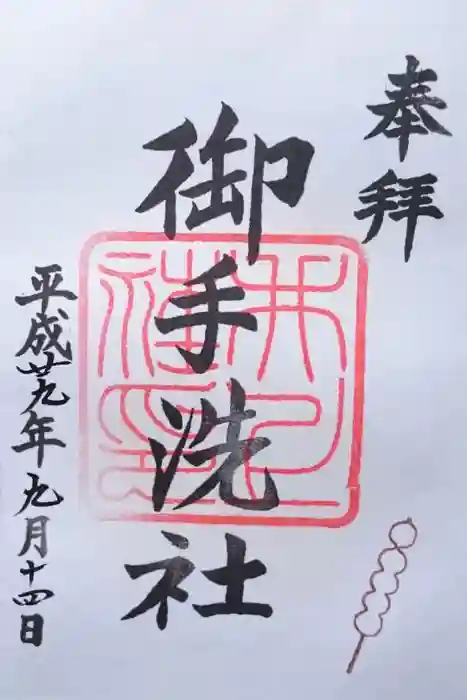 奉拝
御手洗社
平成廿九年九月十四日